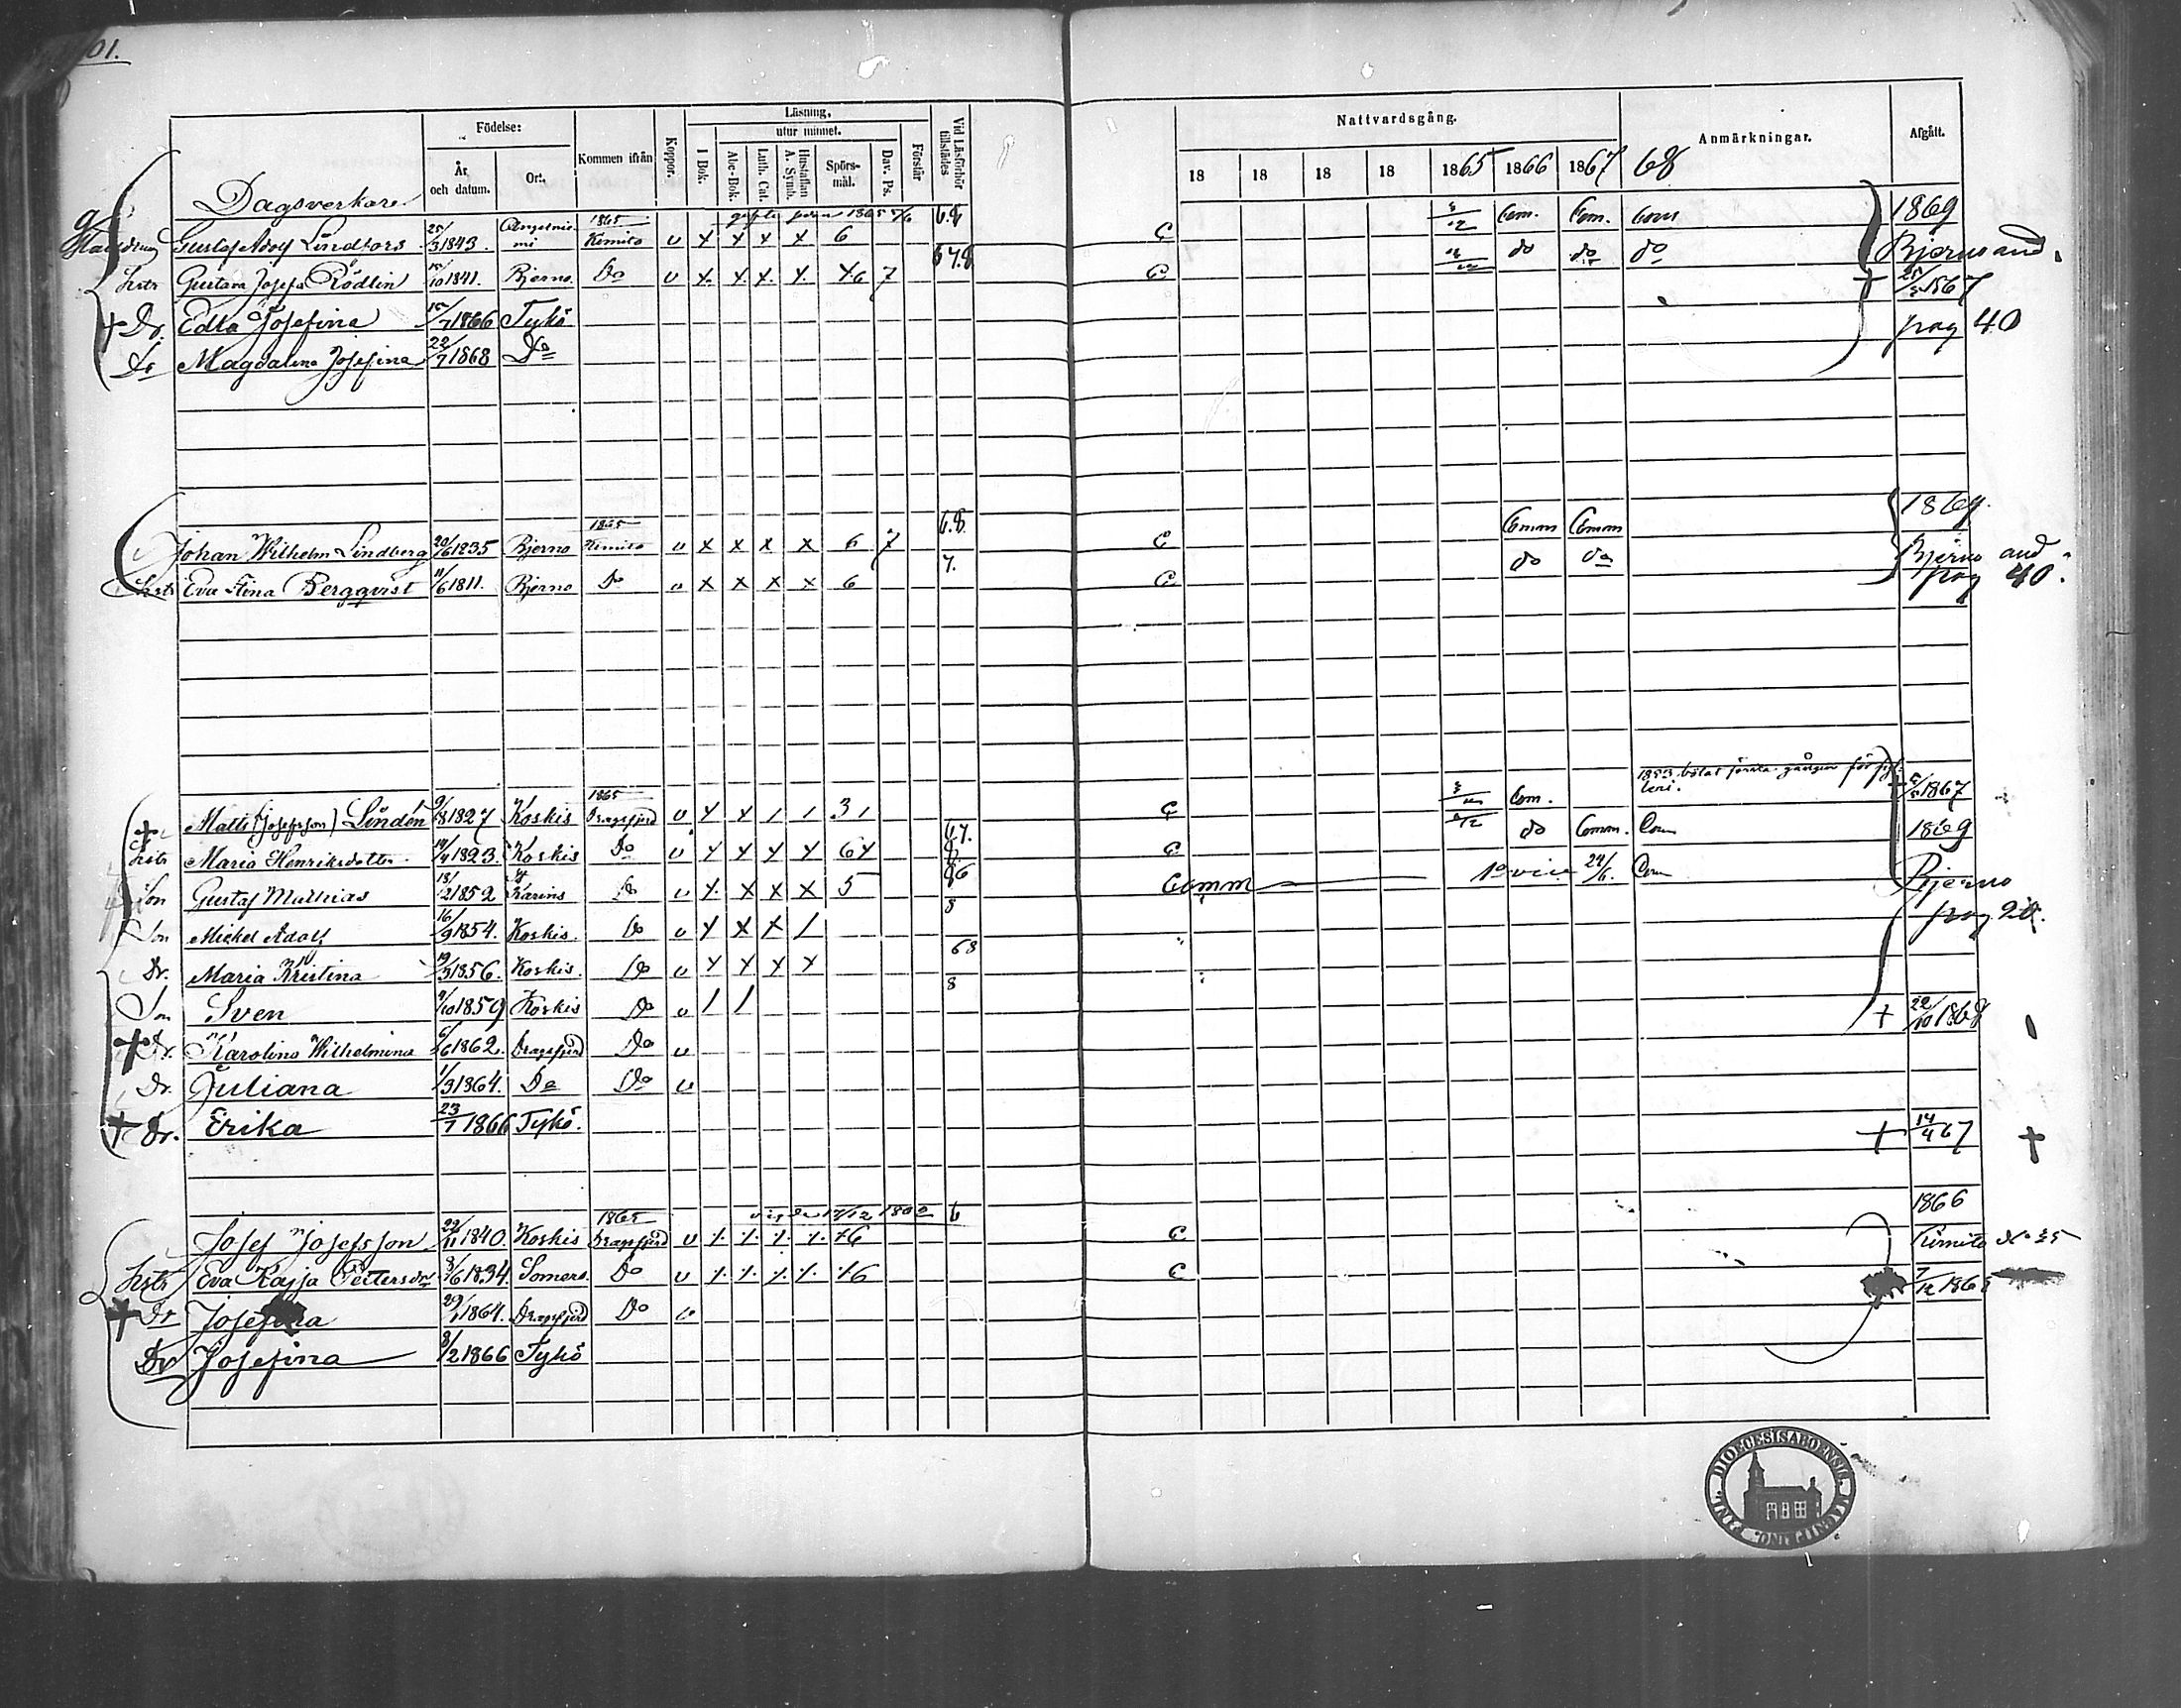 01.
Läsning,
Födelse:
utur minnet.
År och datum.
Ort.
Kommen ifrån
Koppor.
I Bok.
Abc-Bok.
Luth. Cat.
Hustaflan A. Symb.
Spörsmål.
Dav. Ps.
Förstår
Vid Läsförhör tillstädes
Nattvardsgång.
Anmärkningar.
Afgått.
18 18 18 18 1865 1866 1867 68
Dagsverkare
1865 6.8 Com. Com. Com 1869
Gustaf Adolf Lindfors 25/3 1843. Kimito u x x x x 6 C
67.8 do do do Bjerno and.
Hstr Gustava Josefa Rödlin 15/10 1841. Bjerno Do u x x x x x6 7 C
+ 25/5 1867
+ Dr. Edla Josefina 15/7 1866 Tykö
pag 40
Dr Magdalena Josefina 22/7 1868 Do
1865 6.8. Comm Comm 1869.
Johan Wilhelm Lindberg 20/6 1835 Bjerno Kimito u x x x x 6 7 C
7. do do Bjerno and
Hstr Eva Stina Bergqvist 11/6 1811. Bjerno Do u x x x x 6 C
pag 40.
1853 bötat första gången för fylleri.
1865 Com. 1867
+ Matts (Josefsson) Lindén 9/8 1827 Koskis Dragsfjerd u x x / / 3/ C
67. do Comm. Com 1869
Hstr Maria Henriksdotter 14/4 1823. Koskis Do u x x x x 6x C
1o vice 24/6. Com
Son Gustaf Mathias 18/2 1852 Karins Do u x x x x 5 Comm
Bjerno
Son Mickel Adolf 16/9 1854. Koskis. Do u x x x /
pag 28.
Dr. Maria Kristina 19/3 1856. Koskis. Do u x x x x
68
Son Sven 9/10 1859 Koskis Do u / /
8
+ 22/10 1868
+ Dr. Karolina Wilhelmina 6/6 1862. Dragsfjerd Do u
Dr. Juliana 1/3 1864. Do Do u
+ Dr. Erika 23/7 1866 Tykö.
+ 14/4 67 +
1865 6 1866
Josef Josefsson 22/11 1840. Koskis Dragsfjerd u x x x x x6 C
Kimito No 35
Hstr Eva Kajsa Petersdr 3/6 1834. Somero Do u x x x x x6 C
7/12 1865
+ Dr Josefina 29/1 1864. Dragsfjerd Do u
Dr Josefina 8/2 1866 Tykö